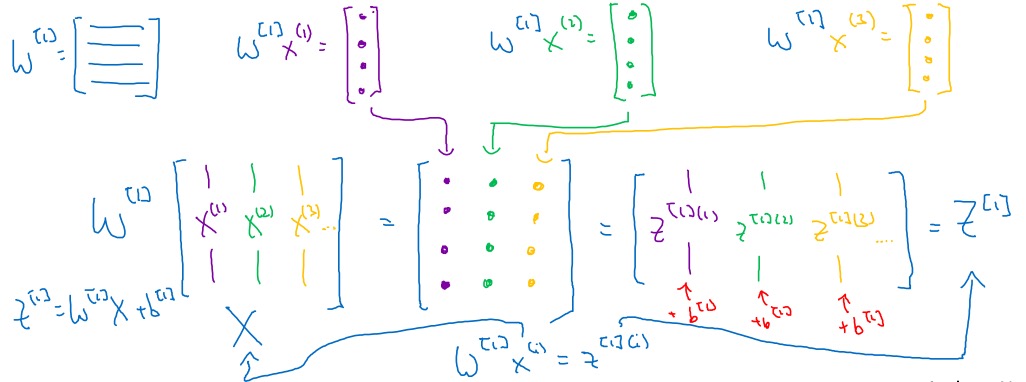 W^[1] = [ ] W^[1] x^(1) = [ ] W^[1] x^(2) = [ ] W^[1] x^(3) = [ ]
W^[1] [ x^(1) x^(2) x^(3) ... ] = [ ] = [ z^[1](1) z^[1](2) z^[1](3) .... ] = Z^[1]
z^[1] = W^[1] X + b^[1]
X
+ b^[1] + b^[1] + b^[1]
W^[1] x^(i) = z^[1](i)